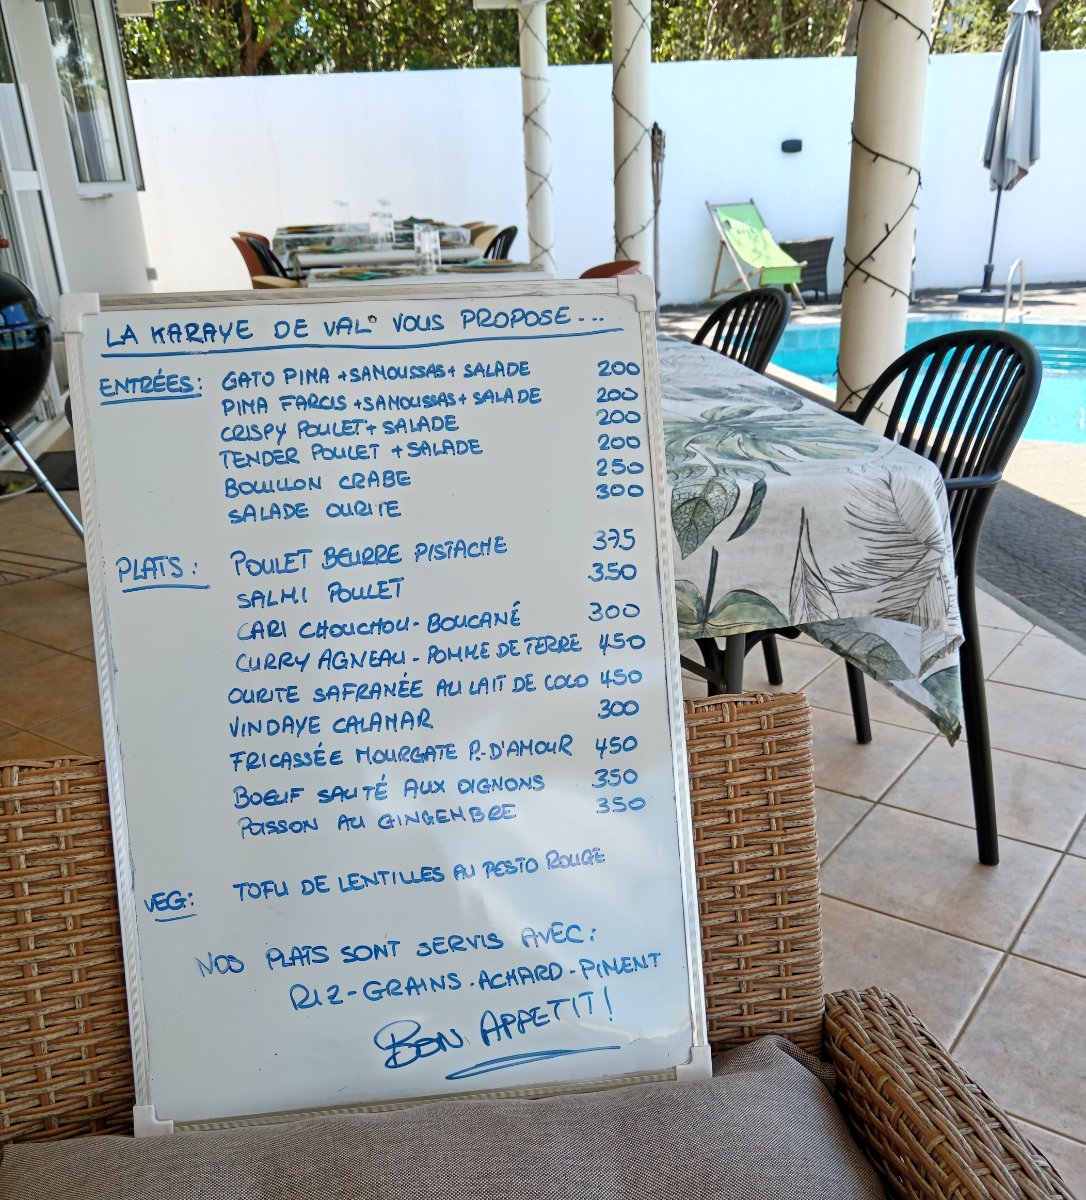 LA KARAYE DE VAL° VOUS PROPOSE...
ENTRÉES: GATO PIMA + SAMOUSSAS + SALADE 200
PIMA FARCIS + SAMOUSSAS + SALADE 200
CRISPY POULET + SALADE 200
TENDER POULET + SALADE 200
BOUILLON CRABE 250
SALADE OURITE 300
PLATS: POULET BEURRE PISTACHE 375
SALMI POULET 350
CARI CHOUCHOU - BOUCANÉ 300
CURRY AGNEAU - POMME DE TERRE 450
OURITE SAFRANÉE AU LAIT DE COCO 450
VINDAYE CALAMAR 300
FRICASSÉE MOURGATE P. D'AMOUR 450
BOEUF SAUTÉ AUX OIGNONS 350
POISSON AU GINGEMBRE 350
VEG: TOFU DE LENTILLES AU PESTO ROUGE
NOS PLATS SONT SERVIS AVEC:
RIZ - GRAINS - ACHARD - PIMENT
BON APPETIT!